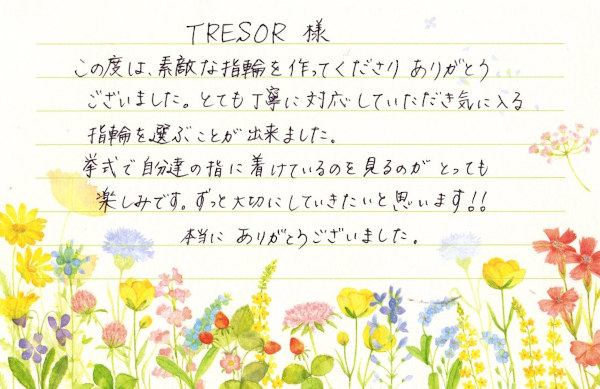 TRESOR 様
この度は、素敵な指輪を作ってくださり ありがとう
ございました。とても丁寧に対応していただき気に入る
指輪を選ぶことが出来ました。
挙式で自分達の指に着けているのを見るのが とっても
楽しみです。ずっと大切にしていきたいと思います!!
本当に ありがとうございました。